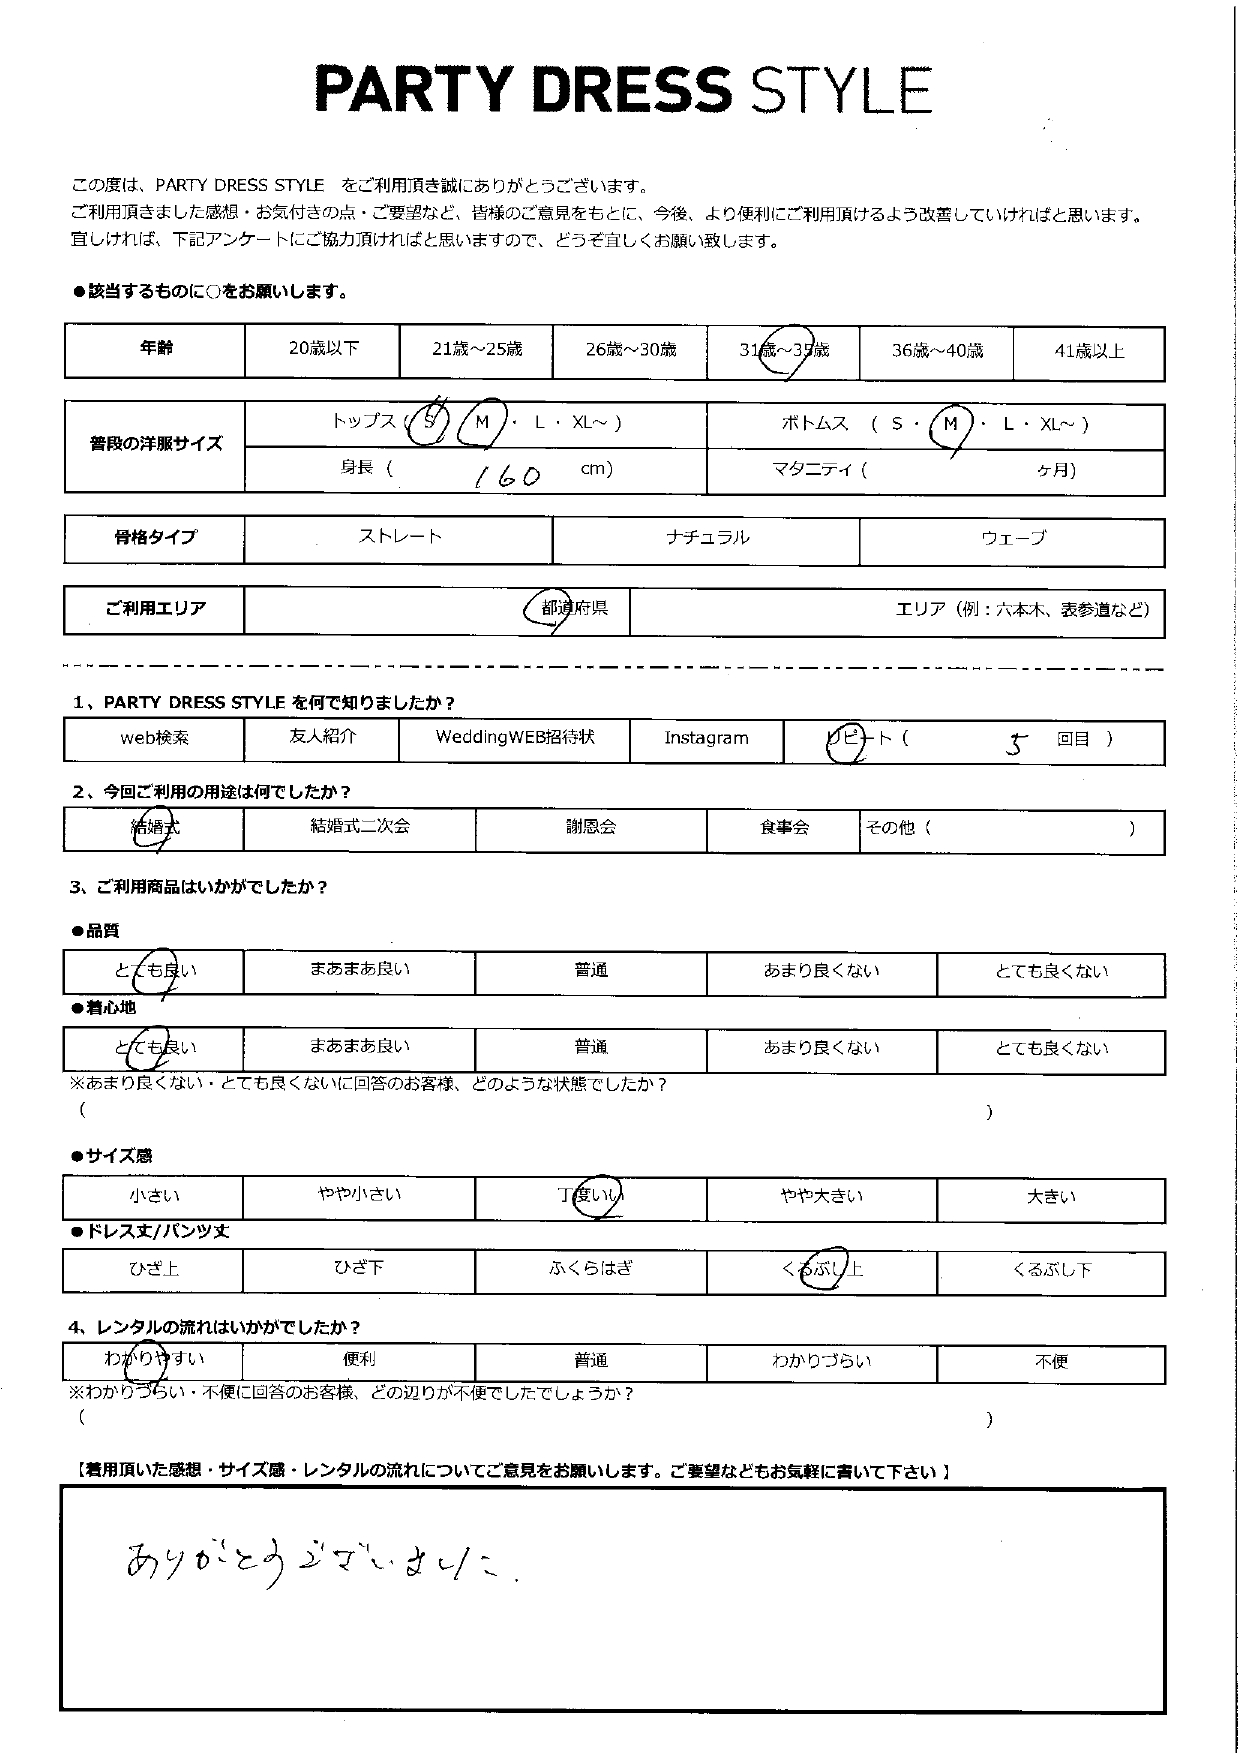 PARTY DRESS STYLE
この度は、PARTY DRESS STYLE をご利用頂き誠にありがとうございます。
ご利用頂きました感想・お気付きの点・ご要望など、皆様のご意見をもとに、今後、より便利にご利用頂けるよう改善していければと思います。
宜しければ、下記アンケートにご協力頂ければと思いますので、どうぞ宜しくお願い致します。
●該当するものに○をお願いします。
年齢 20歳以下 21歳～25歳 26歳～30歳 31歳～35歳 36歳～40歳 41歳以上
普段の洋服サイズ トップス ( S ・ M ・ L ・ XL～ ) ボトムス ( S ・ M ・ L ・ XL～ )
身長 ( 160 cm) マタニティ ( ヶ月)
骨格タイプ ストレート ナチュラル ウェーブ
ご利用エリア 都道府県 エリア（例：六本木、表参道など）
1、PARTY DRESS STYLE を何で知りましたか？
web検索 友人紹介 WeddingWEB招待状 Instagram リピート ( 5 回目 )
2、今回ご利用の用途は何でしたか？
結婚式 結婚式二次会 謝恩会 食事会 その他 ( )
3、ご利用商品はいかがでしたか？
●品質
とても良い まあまあ良い 普通 あまり良くない とても良くない
●着心地
とても良い まあまあ良い 普通 あまり良くない とても良くない
※あまり良くない・とても良くないに回答のお客様、どのような状態でしたか？
( )
●サイズ感
小さい やや小さい 丁度いい やや大きい 大きい
●ドレス丈/パンツ丈
ひざ上 ひざ下 ふくらはぎ くるぶし上 くるぶし下
4、レンタルの流れはいかがでしたか？
わかりやすい 便利 普通 わかりづらい 不便
※わかりづらい・不便に回答のお客様、どの辺りが不便でしたでしょうか？
( )
【着用頂いた感想・サイズ感・レンタルの流れについてご意見をお願いします。ご要望などもお気軽に書いて下さい】
ありがとうございました.